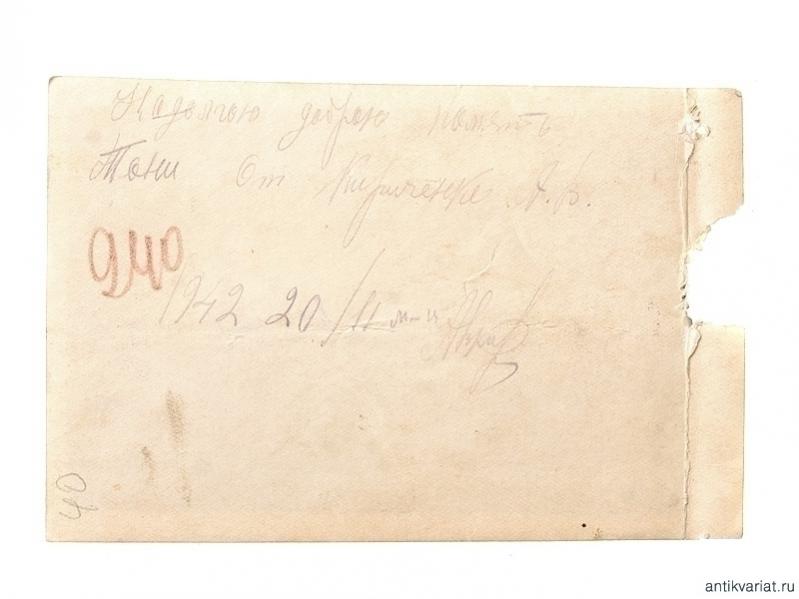 На долгою добрую Память
Тони От Кириченка А.В.
940
1942 20/11 м-ц
40
antikvariat.ru